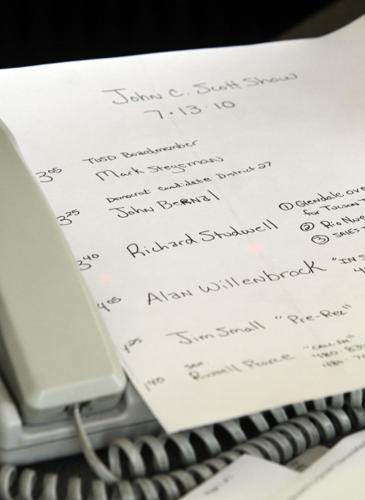 John C. Scott Show
7-13-10
3:05 TUSD Boardmember
Mark Stegeman
Democrat Candidate District 27
3:25 John Bernal
3:40 Richard Studwell
① Glendale ove
for Tucson T
② Rio Nuev
③ SALES T
4:05 Alan Willenbrock "I'M S
:25 Jim Small "Pre-Rec"
:40 Sen
Russell Pearce "CALL IN"
480-83
480-7